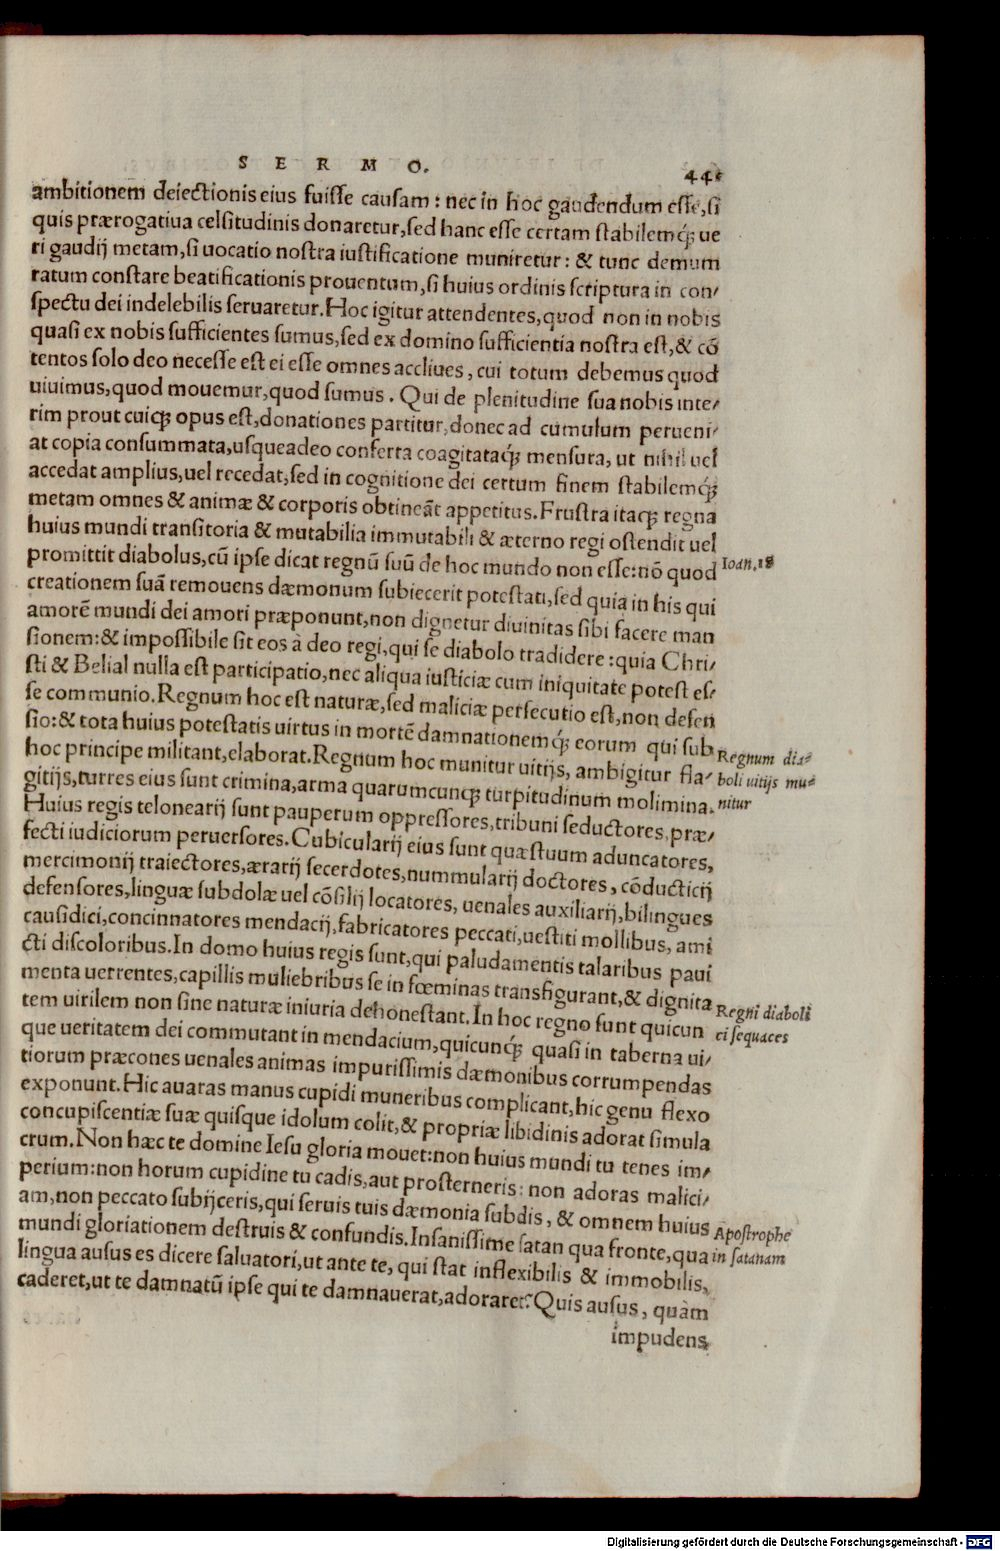 SERMO.
ambitionem deiectionis eius fuisse causam: nec in hoc gaudendum esse, si
quis prærogatiua celsitudinis donaretur, sed hanc esse certam stabilemq́; ue
ri gaudij metam, si uocatio nostra iustificatione muniretur: & tunc demum
ratum constare beatificationis prouentum, si huius ordinis scriptura in con/
spectu dei indelebilis seruaretur. Hoc igitur attendentes, quod non in nobis
quasi ex nobis sufficientes sumus, sed ex domino sufficientia nostra est, & cõ
tentos solo deo necesse est ei esse omnes accliues, cui totum debemus quod
uiuimus, quod mouemur, quod sumus. Qui de plenitudine sua nobis inte/
rim prout cuiq; opus est, donationes partitur, donec ad cumulum perueni/
at copia consummata, usqueadeo conferta coagitataq́; mensura, ut nihil uel
accedat amplius, uel recedat, sed in cognitione dei certum finem stabilemq́;
metam omnes & animæ & corporis obtineãt appetitus. Frustra itaq; regna
huius mundi transitoria & mutabilia immutabili & æterno regi ostendit uel
promittit diabolus, cũ ipse dicat regnũ suũ de hoc mundo non esse: nõ quod
Ioan. 18
creationem suã remouens dæmonum subiecerit potestati, sed quia in his qui
amorẽ mundi dei amori præponunt, non dignetur diuinitas sibi facere man
sionem: & impossibile sit eos à deo regi, qui se diabolo tradidere: quia Chri/
sti & Belial nulla est participatio, nec aliqua iusticiæ cum iniquitate potest es/
se communio. Regnum hoc est naturæ, sed maliciæ persecutio est, non defen
sio: & tota huius potestatis uirtus in mortẽ damnationemq́; eorum qui sub
hoc principe militant, elaborat. Regnum hoc munitur uitijs, ambigitur fla/
gitijs, turres eius sunt crimina, arma quarumcunq; turpitudinum molimina.
Regnum dia=
boli uitijs mu=
nitur
Huius regis telonearij sunt pauperum oppressores, tribuni seductores, præ/
fecti iudiciorum peruersores. Cubicularij eius sunt quæstuum aduncatores,
mercimonij traiectores, ærarij secerdotes, nummularij doctores, cõducticij
defensores, linguæ subdolæ uel cõsilij locatores, uenales auxiliarij, bilingues
causidici, concinnatores mendacij, fabricatores peccati, uestiti mollibus, ami
cti discoloribus. In domo huius regis sunt, qui paludamentis talaribus paui
menta uerrentes, capillis muliebribus se in fœminas transfigurant, & dignita
tem uirilem non sine naturæ iniuria dehonestant. In hoc regno sunt quicun
Regni diaboli
ci sequaces
que ueritatem dei commutant in mendacium, quicunq́; quasi in taberna ui/
tiorum præcones uenales animas impurissimis dæmonibus corrumpendas
exponunt. Hic auaras manus cupidi muneribus complicant, hic genu flexo
concupiscentiæ suæ quisque idolum colit, & propriæ libidinis adorat simula
crum. Non hæc te domine Iesu gloria mouet: non huius mundi tu tenes im/
perium: non horum cupidine tu cadis, aut prosterneris: non adoras malici/
am, non peccato subijceris, qui seruis tuis dæmonia subdis, & omnem huius
mundi gloriationem destruis & confundis. Insanissime satan qua fronte, qua
Apostrophe
in satanam
lingua ausus es dicere saluatori, ut ante te, qui stat inflexibilis & immobilis,
caderet, ut te damnatũ ipse qui te damnauerat, adoraret? Quis ausus, quàm
impudens
Digitalisierung gefördert durch die Deutsche Forschungsgemeinschaft - DFG